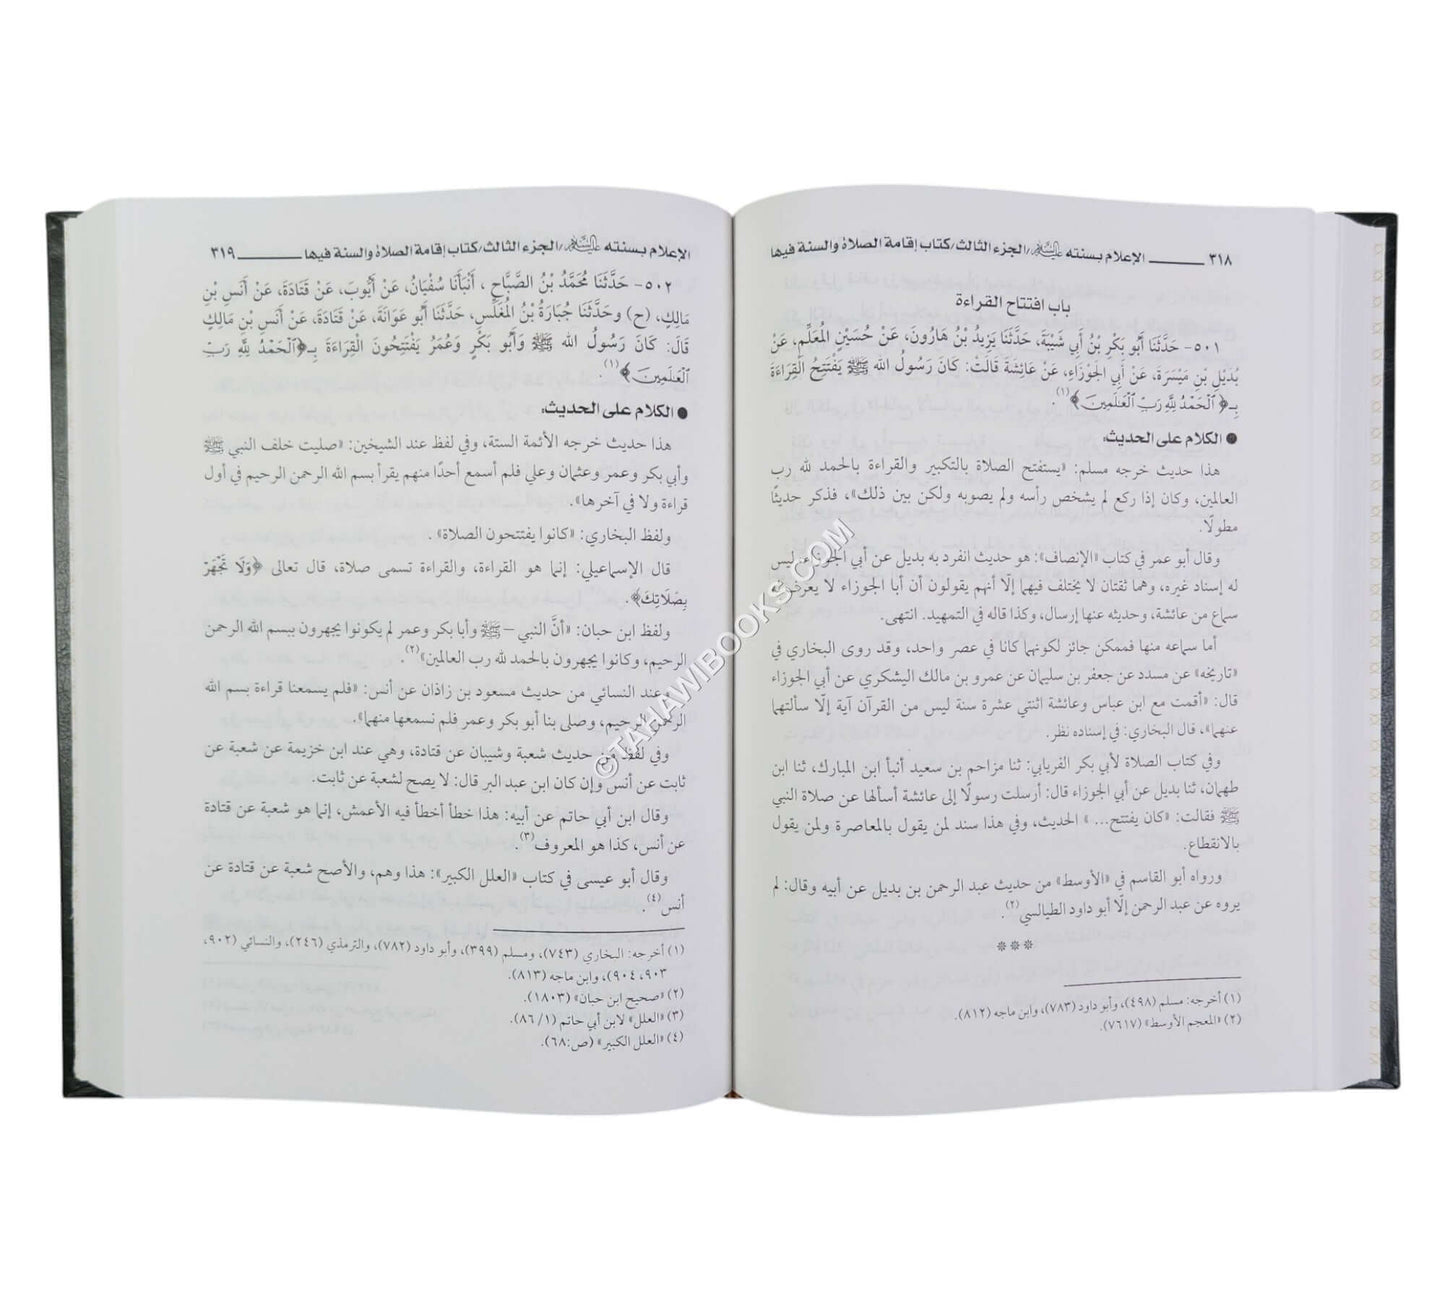 ٣١٨ الإعلام بسنته عليه السلام/الجزء الثالث/كتاب إقامة الصلاة والسنة فيها
باب افتتاح القراءة
٥٠١- حَدَّثَنَا أَبُو بَكْرِ بْنُ أَبِي شَيْبَةَ، حَدَّثَنَا يَزِيدُ بْنُ هَارُونَ، عَنْ حُسَيْنٍ الْمُعَلِّمِ، عَنْ
بُدَيْلِ بْنِ مَيْسَرَةَ، عَنْ أَبِي الجَوْزَاءِ، عَنْ عَائِشَةَ قَالَتْ: كَانَ رَسُولُ الله ﷺ يَفْتَتِحُ الْقِرَاءَةَ
بِـ﴿ٱلْحَمْدُ لِلَّهِ رَبِّ ٱلْعَٰلَمِينَ﴾(١).
● الكلام على الحديث:
هذا حديث خرجه مسلم: «يستفتح الصلاة بالتكبير والقراءة بالحمد لله رب
العالمين، وكان إذا ركع لم يشخص رأسه ولم يصوبه ولكن بين ذلك»، فذكر حديثًا
مطولًا.
وقال أبو عمر في كتاب «الإنصاف»: هو حديث انفرد به بديل عن أبي الجوزاء، ليس
له إسناد غيره، وهما ثقتان لا يختلف فيهما إلّا أنهم يقولون أن أبا الجوزاء لا يعرف له
سماع من عائشة، وحديثه عنها إرسال، وكذا قاله في التمهيد. انتهى.
أما سماعه منها فممكن جائز لكونهما كانا في عصر واحد، وقد روى البخاري في
«تاريخه» عن مسدد عن جعفر بن سليمان عن عمرو بن مالك اليشكري عن أبي الجوزاء
قال: «أقمت مع ابن عباس وعائشة اثنتي عشرة سنة ليس من القرآن آية إلّا سألتهما
عنهما»، قال البخاري: في إسناده نظر.
وفي كتاب الصلاة لأبي بكر الفريابي: ثنا مزاحم بن سعيد أنبأ ابن المبارك، ثنا ابن
طهمان، ثنا بديل عن أبي الجوزاء قال: أرسلت رسولًا إلى عائشة أسألها عن صلاة النبي
ﷺ فقالت: «كان يفتتح... » الحديث، وفي هذا سند لمن يقول بالمعاصرة ولمن يقول
بالانقطاع.
ورواه أبو القاسم في «الأوسط» من حديث عبد الرحمن بن بديل عن أبيه وقال: لم
يروه عن عبد الرحمن إلّا أبو داود الطيالسي(٢).
***
(١) أخرجه: مسلم (٤٩٨)، وأبو داود (٧٨٣)، وابن ماجه (٨١٢).
(٢) «المعجم الأوسط» (٧٦١٧).
الإعلام بسنته عليه السلام/الجزء الثالث/كتاب إقامة الصلاة والسنة فيها ٣١٩
٥٠٢- حَدَّثَنَا مُحَمَّدُ بْنُ الصَّبَّاحِ، أَنْبَأَنَا سُفْيَانُ، عَنْ أَيُّوبَ، عَنْ قَتَادَةَ، عَنْ أَنَسِ بْنِ
مَالِكٍ، (ح) وحَدَّثَنَا جُبَارَةُ بْنُ المُغَلِّسِ، حَدَّثَنَا أَبُو عَوَانَةَ، عَنْ قَتَادَةَ، عَنْ أَنَسِ بْنِ مَالِكٍ
قَالَ: كَانَ رَسُولُ الله ﷺ وَأَبُو بَكْرٍ وَعُمَرُ يَفْتَتِحُونَ الْقِرَاءَةَ بِـ﴿ٱلْحَمْدُ لِلَّهِ رَبِّ
ٱلْعَٰلَمِينَ﴾(١).
● الكلام على الحديث:
هذا حديث خرجه الأئمة الستة، وفي لفظ عند الشيخين: «صليت خلف النبي ﷺ
وأبي بكر وعمر وعثمان وعلي فلم أسمع أحدًا منهم يقرأ بسم الله الرحمن الرحيم في أول
قراءة ولا في آخرها».
ولفظ البخاري: «كانوا يفتتحون الصلاة» .
قال الإسماعيلي: إنما هو القراءة، والقراءة تسمى صلاة، قال تعالى ﴿وَلَا تَجْهَرْ
بِصَلَاتِكَ﴾.
ولفظ ابن حبان: «أنَّ النبي –ﷺ وأبا بكر وعمر لم يكونوا يجهرون ببسم الله الرحمن
الرحيم، وكانوا يجهرون بالحمد لله رب العالمين»(٢).
وعند النسائي من حديث مسعود بن زاذان عن أنس: «فلم يسمعنا قراءة بسم الله
الرحمن الرحيم، وصلى بنا أبو بكر وعمر فلم نسمعها منهما».
وفي لفظ من حديث شعبة وشيبان عن قتادة، وهي عند ابن خزيمة عن شعبة عن
ثابت عن أنس وإن كان ابن عبد البر قال: لا يصح لشعبة عن ثابت.
وقال ابن أبي حاتم عن أبيه: هذا خطأ أخطأ فيه الأعمش، إنما هو شعبة عن قتادة
عن أنس، كذا هو المعروف(٣).
وقال أبو عيسى في كتاب «العلل الكبير»: هذا وهم، والأصح شعبة عن قتادة عن
أنس(٤).
(١) أخرجه: البخاري (٧٤٣)، ومسلم (٣٩٩)، وأبو داود (٧٨٢)، والترمذي (٢٤٦)، والنسائي (٩٠٢،
٩٠٣، ٩٠٤)، وابن ماجه (٨١٣).
(٢) «صحيح ابن حبان» (١٨٠٣).
(٣) «العلل» لابن أبي حاتم (١/ ٨٦).
(٤) «العلل الكبير» (ص:٦٨).
© TAHAWIBOOKS.COM